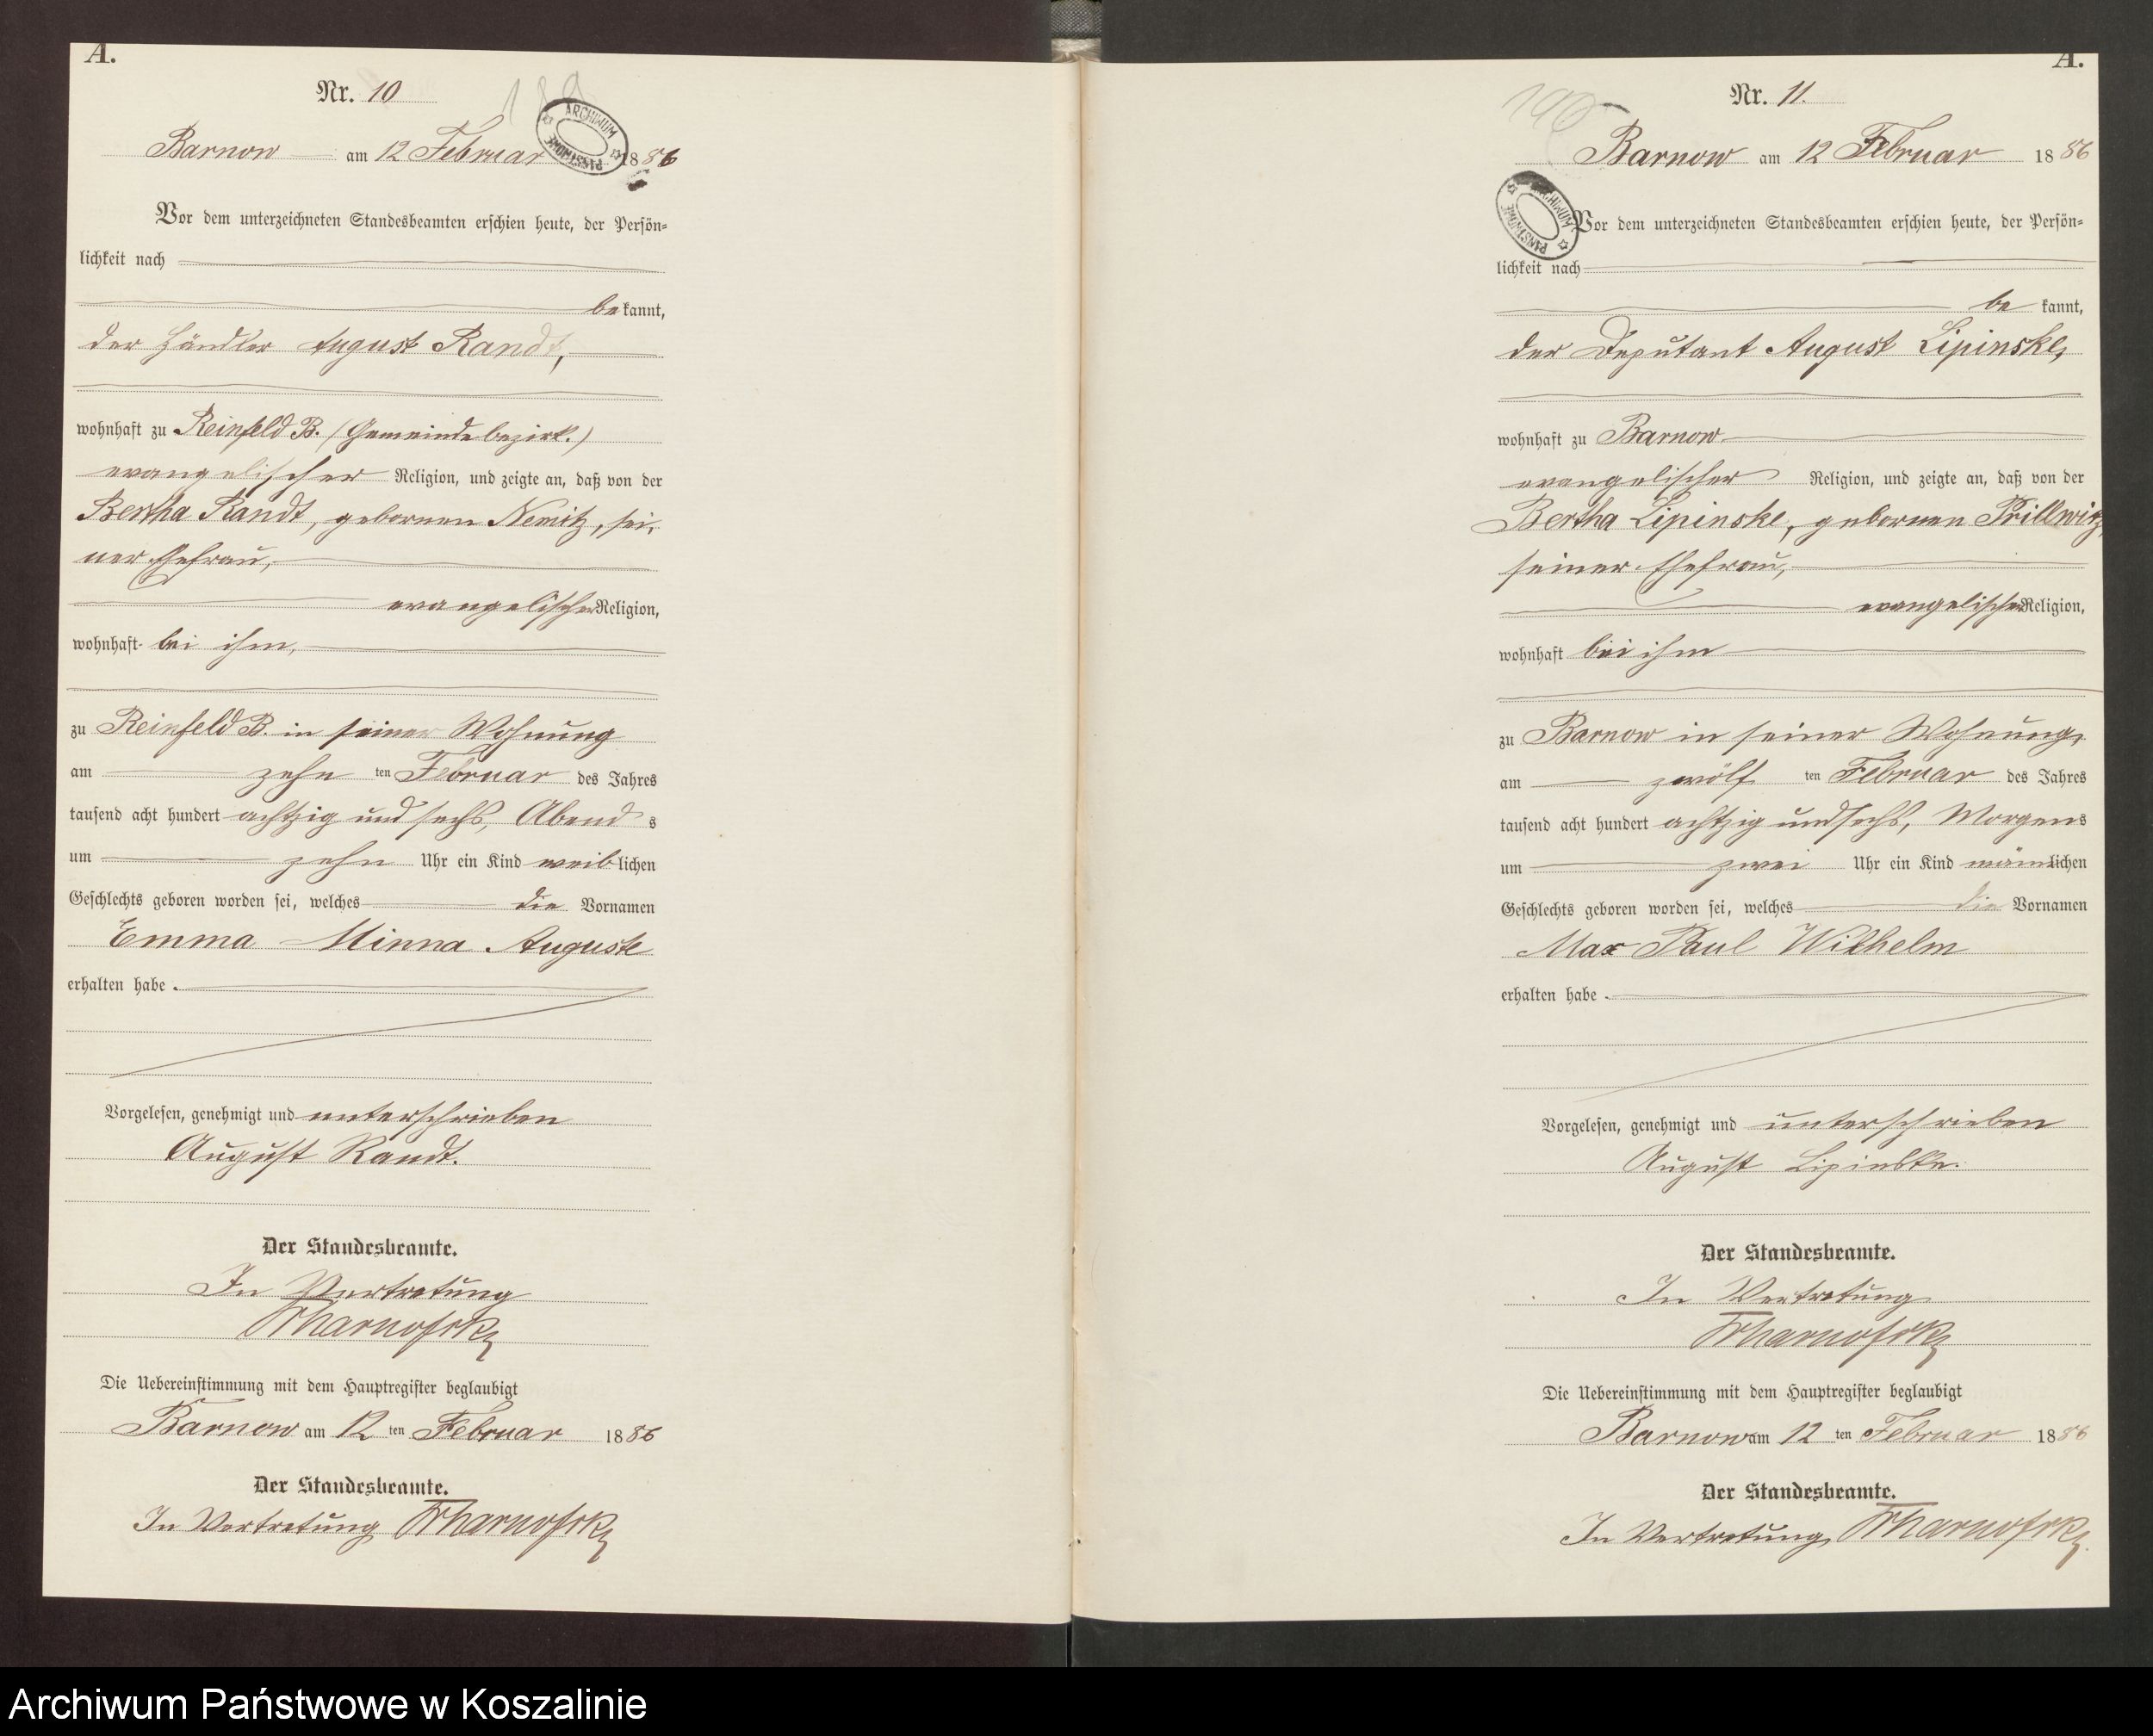 A.
Nr. 10
189
ARCHIWUM PAŃSTWOWE
Barnow am 12 Februar 1886
Vor dem unterzeichneten Standesbeamten erschien heute, der Persön=
lichkeit nach
bekannt,
der Händler August Randt,
wohnhaft zu Reinfeld B. (Gemeindebezirk.)
evangelischer Religion, und zeigte an, daß von der
Bertha Randt, geborenen Nemitz, sei-
ner Ehefrau,
evangelischer Religion,
wohnhaft bei ihm,
zu Reinfeld B. in seiner Wohnung
am zehn ten Februar des Jahres
tausend acht hundert achtzig und sechs, Abends
um zehn Uhr ein Kind weiblichen
Geschlechts geboren worden sei, welches die Vornamen
Emma Minna Auguste
erhalten habe.
Vorgelesen, genehmigt und unterschrieben
August Randt.
Der Standesbeamte.
In Vertretung
Die Uebereinstimmung mit dem Hauptregister beglaubigt
Barnow am 12 ten Februar 1886
Der Standesbeamte.
In Vertretung
A.
Nr. 11.
190
Barnow am 12 Februar 1886
ARCHIWUM PAŃSTWOWE
Vor dem unterzeichneten Standesbeamten erschien heute, der Persön=
lichkeit nach
bekannt,
der Deputant August Lipinske,
wohnhaft zu Barnow
evangelischer Religion, und zeigte an, daß von der
Bertha Lipinske, geborenen Prillwitz,
seiner Ehefrau,
evangelischer Religion,
wohnhaft bei ihm
zu Barnow in seiner Wohnung,
am zwölf ten Februar des Jahres
tausend acht hundert achtzig und sechs, Morgens
um zwei Uhr ein Kind männlichen
Geschlechts geboren worden sei, welches die Vornamen
Max Paul Wilhelm
erhalten habe.
Vorgelesen, genehmigt und unterschrieben
August Lipinske.
Der Standesbeamte.
In Vertretung
Die Uebereinstimmung mit dem Hauptregister beglaubigt
Barnow am 12 ten Februar 1886
Der Standesbeamte.
In Vertretung
Archiwum Państwowe w Koszalinie